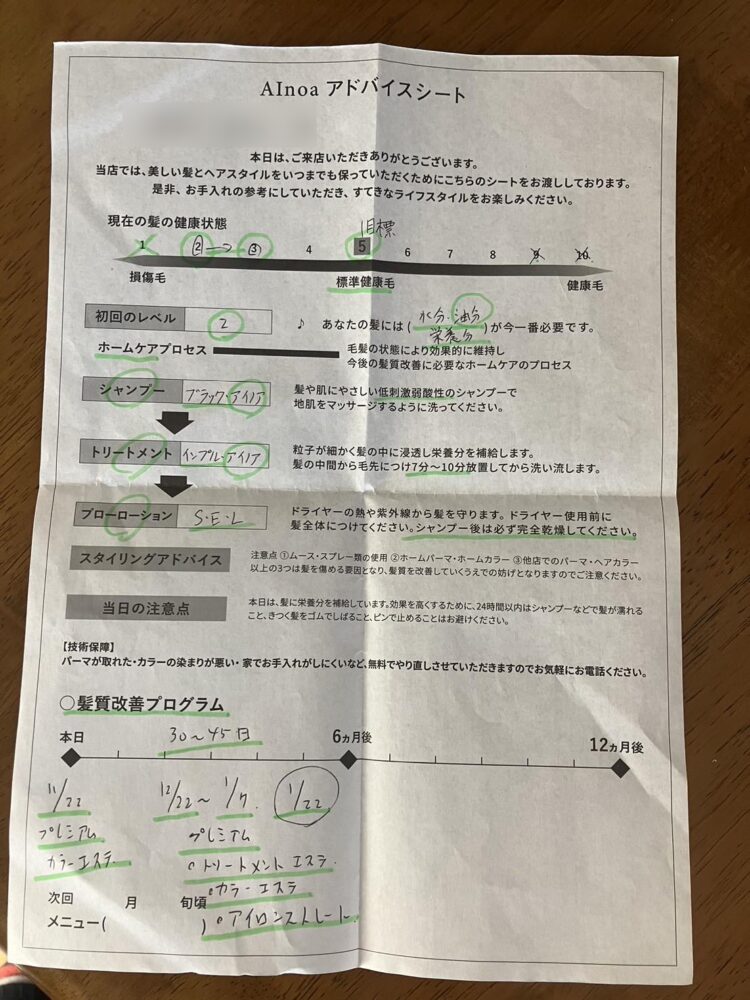 AInoa アドバイスシート
本日は、ご来店いただきありがとうございます。
当店では、美しい髪とヘアスタイルをいつまでも保っていただくためにこちらのシートをお渡ししております。
是非、お手入れの参考にしていただき、すてきなライフスタイルをお楽しみください。
現在の髪の健康状態
目標
1 2 → 3 4 5 6 7 8 9 10
損傷毛 標準健康毛 健康毛
初回のレベル 2 ♪ あなたの髪には(水分・油分 栄養分)が今一番必要です。
ホームケアプロセス 毛髪の状態により効果的に維持し
今後の髪質改善に必要なホームケアのプロセス
シャンプー ブラック・アイノア 髪や肌にやさしい低刺激弱酸性のシャンプーで
地肌をマッサージするように洗ってください。
トリートメント インプル・アイノア 粒子が細かく髪の中に浸透し栄養分を補給します。
髪の中間から毛先につけ7分〜10分放置してから洗い流します。
ブローローション S・E・L ドライヤーの熱や紫外線から髪を守ります。ドライヤー使用前に
髪全体につけてください。シャンプー後は必ず完全乾燥してください。
スタイリングアドバイス 注意点 ①ムース・スプレー類の使用 ②ホームパーマ・ホームカラー ③他店でのパーマ・ヘアカラー
以上の3つは髪を傷める要因となり、髪質を改善していくうえでの妨げとなりますのでご注意ください。
当日の注意点 本日は、髪に栄養分を補給しています。効果を高くするために、24時間以内はシャンプーなどで髪が濡れる
こと、きつく髪をゴムでしばること、ピンで止めることはお避けください。
【技術保障】
パーマが取れた・カラーの染まりが悪い・家でお手入れがしにくいなど、無料でやり直しさせていただきますのでお気軽にお電話ください。
○髪質改善プログラム
本日 30〜45日 6ヵ月後 12ヵ月後
11/22 12/22〜1/7. 1/22
プレミアム プレミアム
カラーエステ. トリートメントエステ.
カラーエステ
次回 月 旬頃
メニュー( ) アイロンストレート.